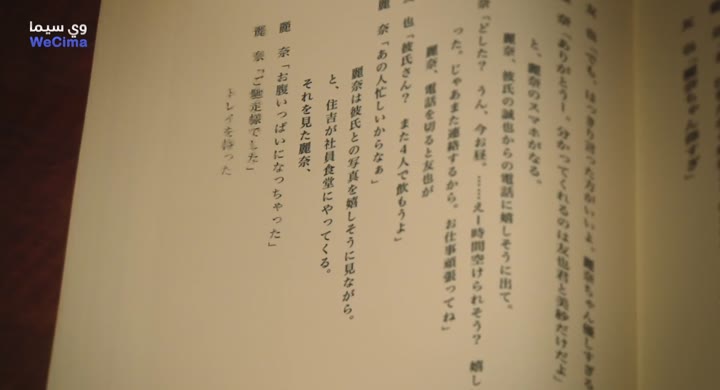 وي سيما
WeCima
友 也「でも、はっきり言った方がいいよ。麗奈ちゃん優しすぎる
奈「ありがとうー。分かってくれるのは友也君と美紗だけだよ」
と、麗奈のスマホがなる。
麗奈、彼氏の誠也からの電話に嬉しそうに出て。
奈「どした? うん、今お昼。……えー時間空けられそう? 嬉し
った。じゃあまた連絡するから。お仕事頑張ってね」
麗奈、電話を切ると友也が
也「彼氏さん? また4人で飲もうよ」
麗 奈「あの人忙しいからなぁ」
麗奈は彼氏との写真を嬉しそうに見ながら。
と、住吉が社員食堂にやってくる。
それを見た麗奈、
麗 奈「お腹いっぱいになっちゃった」
麗 奈「ご馳走様でした」
トレイを持った